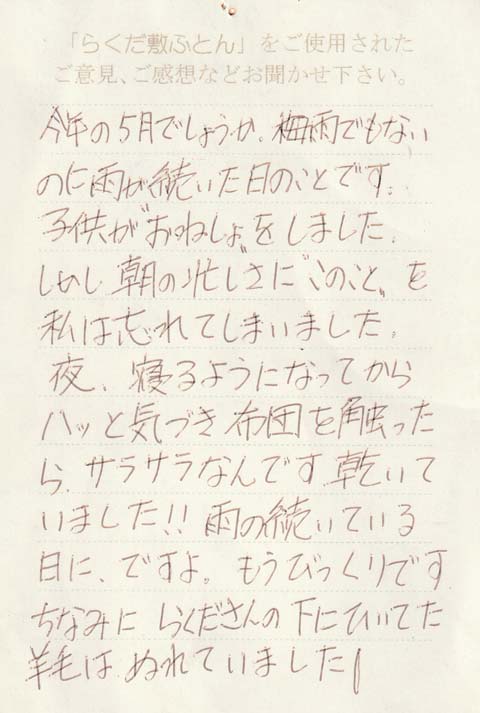 「らくだ敷ふとん」をご使用された
ご意見、ご感想などお聞かせ下さい。
今年の5月でしょうか。梅雨でもない
のに雨が続いた日のことです。
子供が"おねしょ"をしました。
しかし朝の忙しさに"このこと"を
私は忘れてしまいました。
夜、寝るようになってから
ハッと気づき布団を触った
ら、サラサラなんです。乾いて
いました!!雨の続いている
日に、ですよ。もうびっくりです。
ちなみにらくださんの下にひいてた
羊毛はぬれていました!